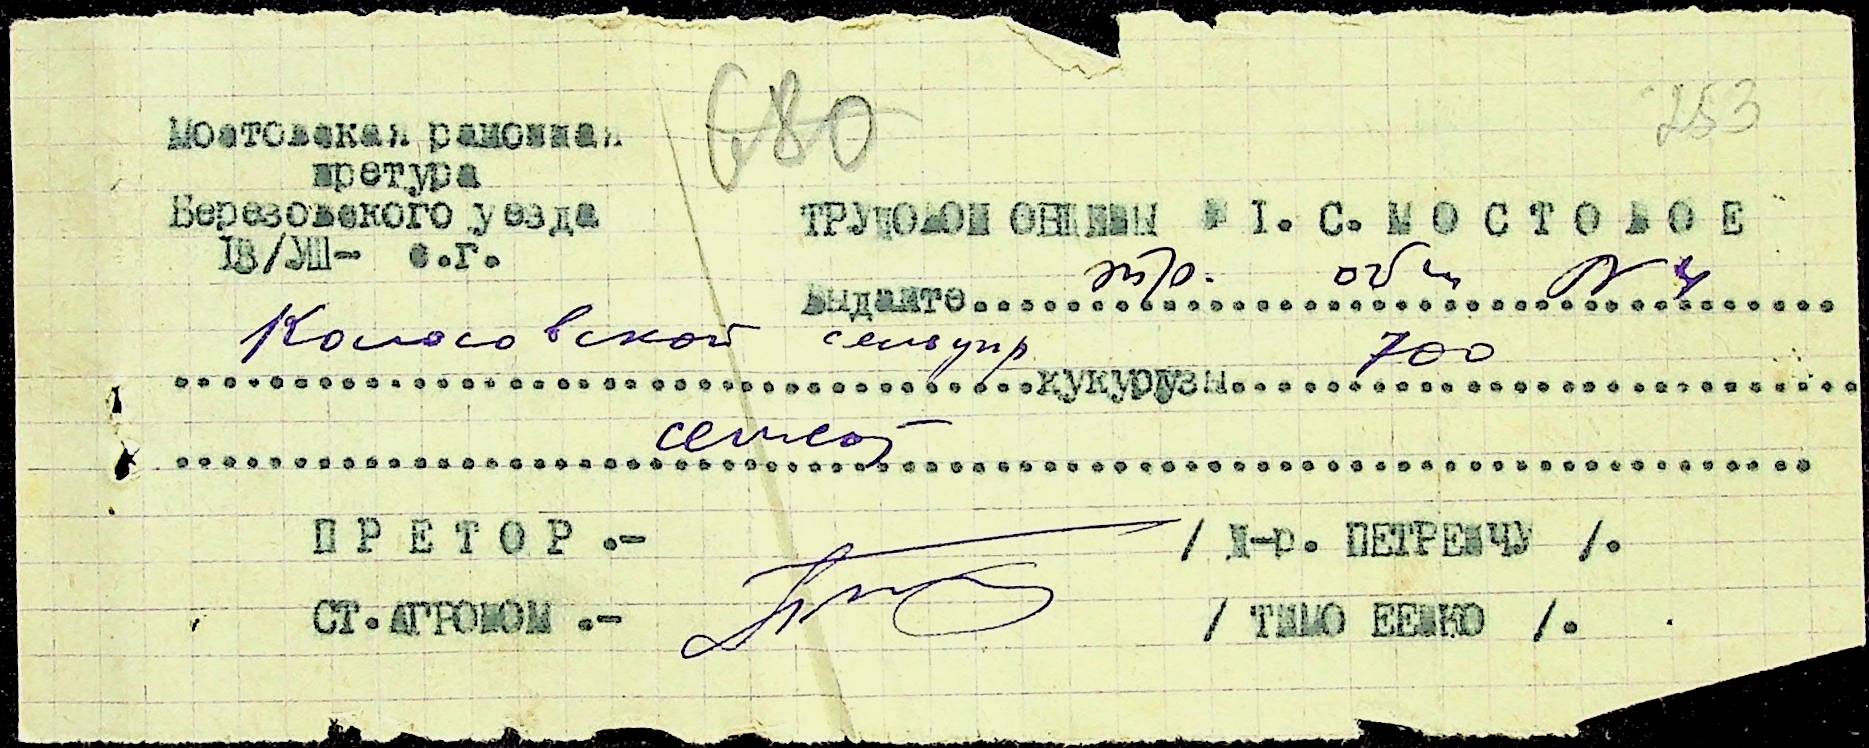 680
253
Мостовская районная
претура
Березовского уезда
18/УІІІ- с.г.
ТРУДОВОЙ ОБЩИНЫ № I. С. М О С Т О В О Е
Выдайте тр. общ N 4
Колосовской сельупр кукурузы 700
семсот
П Р Е Т О Р .- / Д-р. ПЕТРЕНЧУ /.
СТ. АГРОНОМ .- / ТИМО ЕЕНКО /.